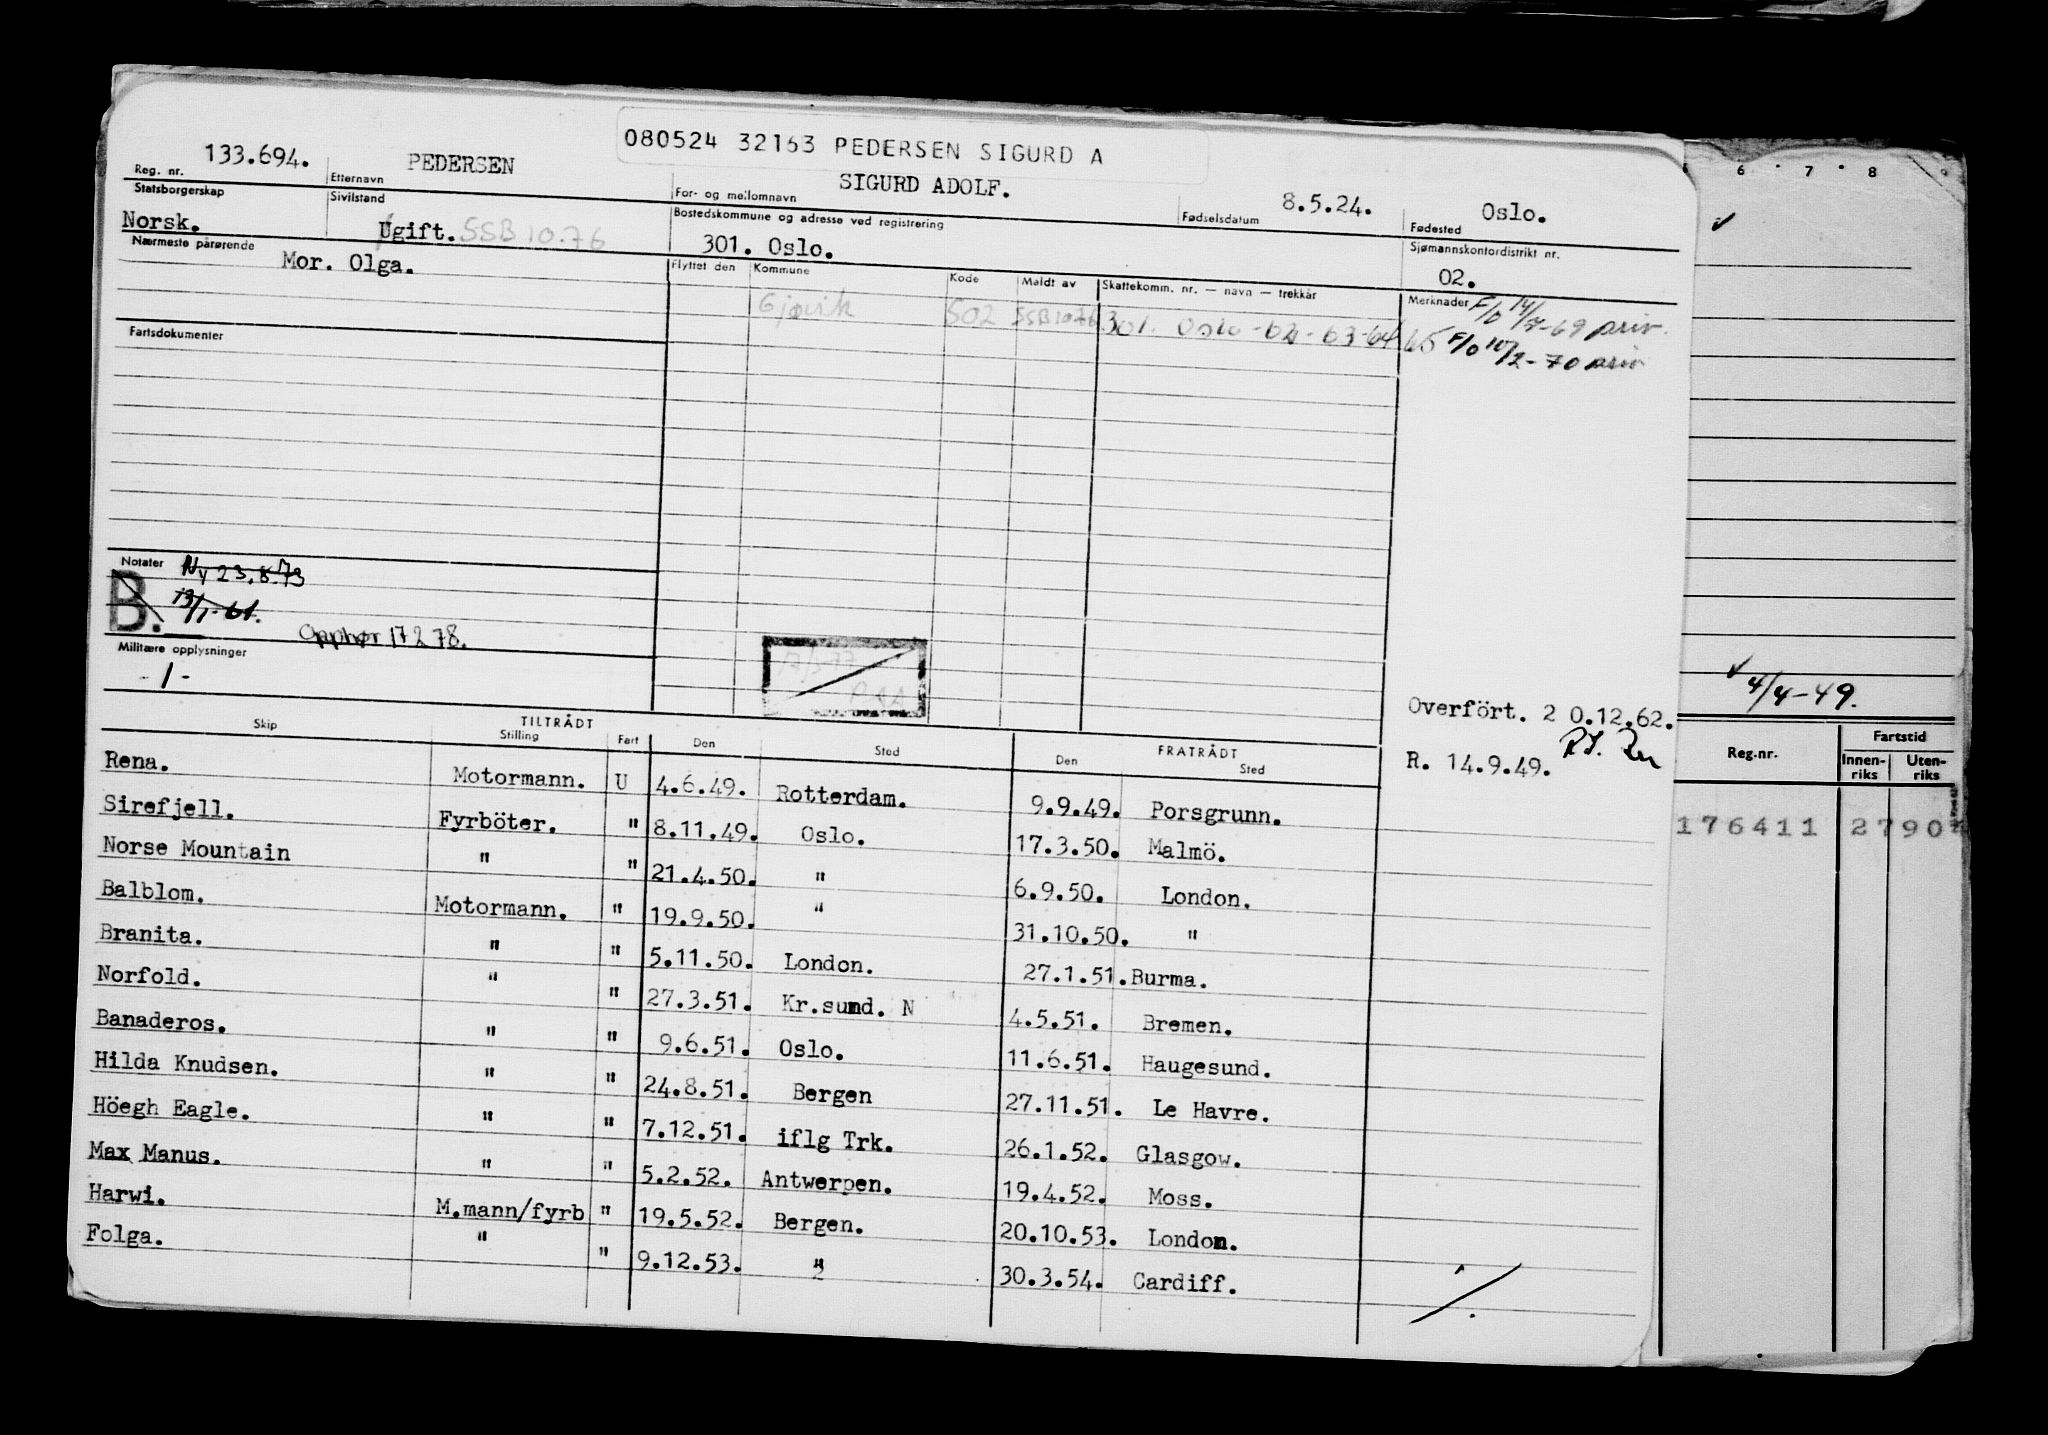 080524 32163 PEDERSEN SIGURD A
Reg. nr. 133.694. Etternavn PEDERSEN For- og mellomnavn SIGURD ADOLF. Fødselsdatum 8.5.24. Fødested Oslo.
Statsborgerskap Norsk. Sivilstand Ugift. SSB 10.76 Bostedskommune og adresse ved registrering 301. Oslo. Sjømannskontordistrikt nr. 02.
Nærmeste pårørende Mor. Olga.
Flyttet den Kommune Kode Meldt av Skattekomm. nr. — navn — trekkår Merknader F/O 14/7-69 priv.
Gjøvik 502 SSB 10.76 301. Oslo -62-63-64 65 F/O 10/2-70 priv
Fartsdokumenter
Notater Ny 23.8.73
B. 13/1-61.
Opphør 17 2 78.
Militære opplysninger
-1-
Overfört. 2 0.12.62.
R. 14.9.49.
TILTRÅDT FRATRÅDT
Skip Stilling Fart Den Sted Den Sted
Rena. Motormann. U 4.6.49. Rotterdam. 9.9.49. Porsgrunn.
Sirefjell. Fyrböter. " 8.11.49. Oslo. 17.3.50. Malmö.
Norse Mountain " " 21.4.50. " 6.9.50. London.
Balblom. Motormann. " 19.9.50. " 31.10.50. "
Branita. " " 5.11.50. London. 27.1.51. Burma.
Norfold. " " 27.3.51. Kr.sund. N 4.5.51. Bremen.
Banaderos. " " 9.6.51. Oslo. 11.6.51. Haugesund.
Hilda Knudsen. " " 24.8.51. Bergen 27.11.51. Le Havre.
Höegh Eagle. " " 7.12.51. iflg Trk. 26.1.52. Glasgow.
Max Manus. " " 5.2.52. Antwerpen. 19.4.52. Moss.
Harwi. M.mann/fyrb " 19.5.52. Bergen. 20.10.53. London.
Folga. " " 9.12.53. " 30.3.54. Cardiff.
6 · 7 · 8
4/4-49.
Reg.nr. Fartstid
Innen-riks Uten-riks
176411 2790